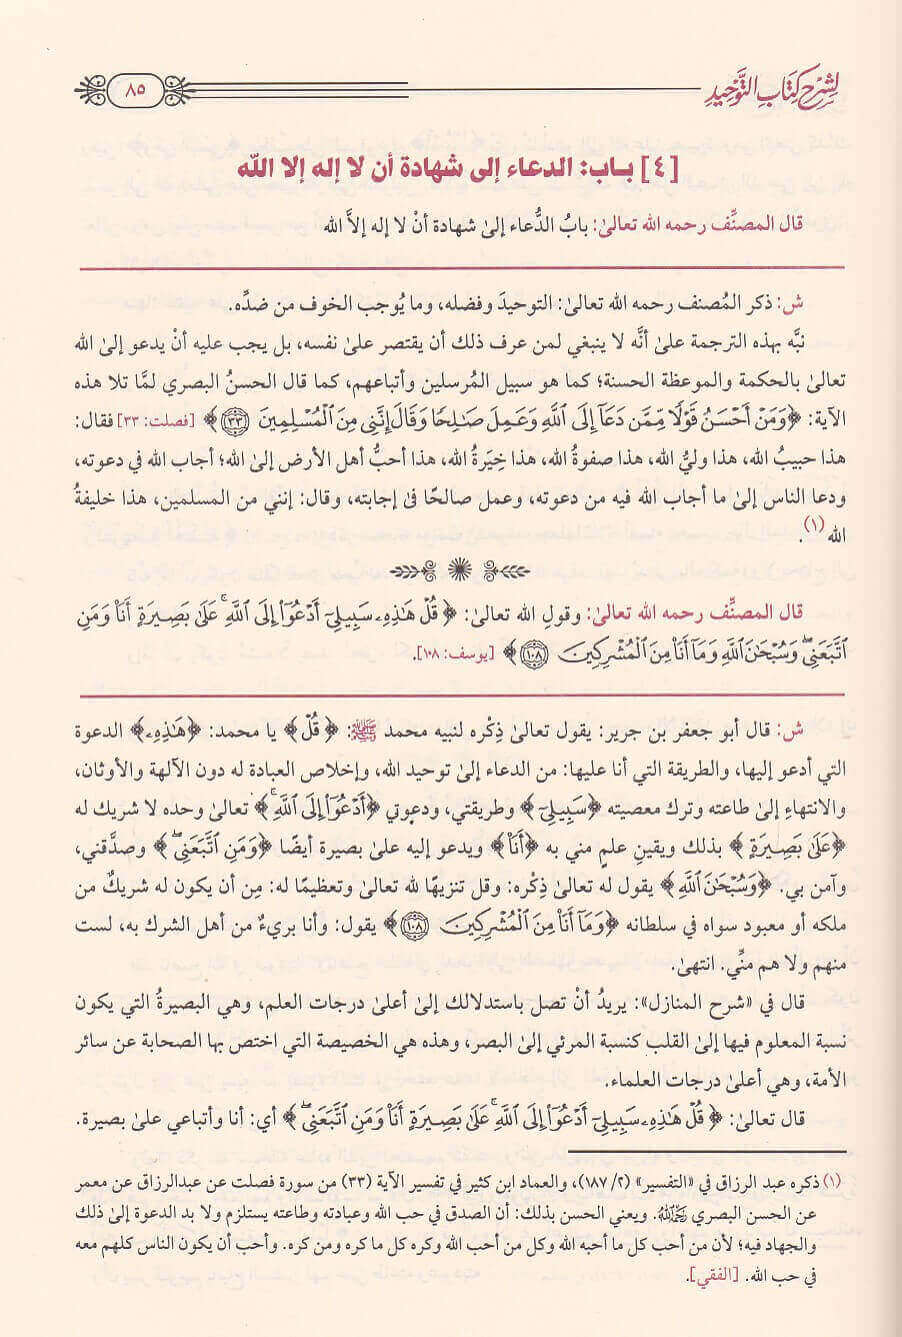 لشرح كتاب التوحيد
٨٥
[٤] باب: الدعاء إلى شهادة أن لا إله إلا الله
قال المصنِّف رحمه الله تعالىٰ: بابُ الدُّعاء إلىٰ شهادة أنْ لا إله إلاَّ الله
ش: ذكر المُصنف رحمه الله تعالىٰ: التوحيدَ وفضله، وما يُوجب الخوف من ضدِّه.
نبَّه بهذه الترجمة علىٰ أنَّه لا ينبغي لمن عرف ذلك أن يقتصر علىٰ نفسه، بل يجب عليه أنْ يدعو إلىٰ الله
تعالىٰ بالحكمة والموعظة الحسنة؛ كما هو سبيل المُرسلين وأتباعهم، كما قال الحسنُ البصري لمَّا تلا هذه
الآية: ﴿وَمَنْ أَحْسَنُ قَوْلًا مِّمَّن دَعَآ إِلَى ٱللَّهِ وَعَمِلَ صَٰلِحًا وَقَالَ إِنَّنِى مِنَ ٱلْمُسْلِمِينَ ٣٣﴾ [فصلت: ٣٣] فقال:
هذا حبيبُ الله، هذا وليُّ الله، هذا صفوةُ الله، هذا خِيَرةُ الله، هذا أحبُّ أهل الأرض إلىٰ الله؛ أجاب الله في دعوته،
ودعا الناس إلىٰ ما أجاب الله فيه من دعوته، وعمل صالحًا فى إجابته، وقال: إنني من المسلمين، هذا خليفةُ
الله(١).
قال المصنِّف رحمه الله تعالىٰ: وقولِ الله تعالىٰ: ﴿قُلْ هَٰذِهِۦ سَبِيلِىٓ أَدْعُوٓا۟ إِلَى ٱللَّهِ ۚ عَلَىٰ بَصِيرَةٍ أَنَا۠ وَمَنِ
ٱتَّبَعَنِى ۖ وَسُبْحَٰنَ ٱللَّهِ وَمَآ أَنَا۠ مِنَ ٱلْمُشْرِكِينَ ١٠٨﴾ [يوسف: ١٠٨].
ش: قال أبو جعفر بن جرير: يقول تعالىٰ ذِكْره لنبيه محمد ﷺ: ﴿قُلْ﴾ يا محمد: ﴿هَٰذِهِۦ﴾ الدعوة
التي أدعو إليها، والطريقة التي أنا عليها: من الدعاء إلىٰ توحيد الله، وإخلاص العبادة له دون الآلهة والأوثان،
والانتهاءِ إلىٰ طاعته وترك معصيته ﴿سَبِيلِىٓ﴾ وطريقتي، ودعوتي ﴿أَدْعُوٓا۟ إِلَى ٱللَّهِ ۚ﴾ تعالىٰ وحده لا شريك له
﴿عَلَىٰ بَصِيرَةٍ﴾ بذلك ويقينِ علمٍ مني به ﴿أَنَا۠﴾ ويدعو إليه علىٰ بصيرة أيضًا ﴿وَمَنِ ٱتَّبَعَنِى ۖ﴾ وصدَّقني،
وآمن بي. ﴿وَسُبْحَٰنَ ٱللَّهِ﴾ يقول له تعالىٰ ذِكْره: وقل تنزيهًا لله تعالىٰ وتعظيمًا له: مِن أن يكون له شريكٌ من
ملكه أو معبود سواه في سلطانه ﴿وَمَآ أَنَا۠ مِنَ ٱلْمُشْرِكِينَ ١٠٨﴾ يقول: وأنا بريءٌ من أهل الشرك به، لست
منهم ولا هم منِّي. انتهىٰ.
قال في «شرح المنازل»: يريدُ أنْ تصل باستدلالك إلىٰ أعلىٰ درجات العلم، وهي البصيرةُ التي يكون
نسبة المعلوم فيها إلىٰ القلب كنسبة المرئي إلىٰ البصر، وهذه هي الخصيصة التي اختص بها الصحابة عن سائر
الأمة، وهي أعلىٰ درجات العلماء.
قال تعالىٰ: ﴿قُلْ هَٰذِهِۦ سَبِيلِىٓ أَدْعُوٓا۟ إِلَى ٱللَّهِ ۚ عَلَىٰ بَصِيرَةٍ أَنَا۠ وَمَنِ ٱتَّبَعَنِى ۖ﴾ أي: أنا وأتباعي علىٰ بصيرة.
(١) ذكره عبد الرزاق في «التفسير» (١٨٧/٢)، والعماد ابن كثير في تفسير الآية (٣٣) من سورة فصلت عن عبدالرزاق عن معمر
عن الحسن البصري رحمه الله. ويعني الحسن بذلك: أن الصدق في حب الله وعبادته وطاعته يستلزم ولا بد الدعوة إلىٰ ذلك
والجهاد فيه؛ لأن من أحب كل ما أحبه الله وكل من أحب الله وكره كل ما كره ومن كره. وأحب أن يكون الناس كلهم معه
في حب الله. [الفقي].